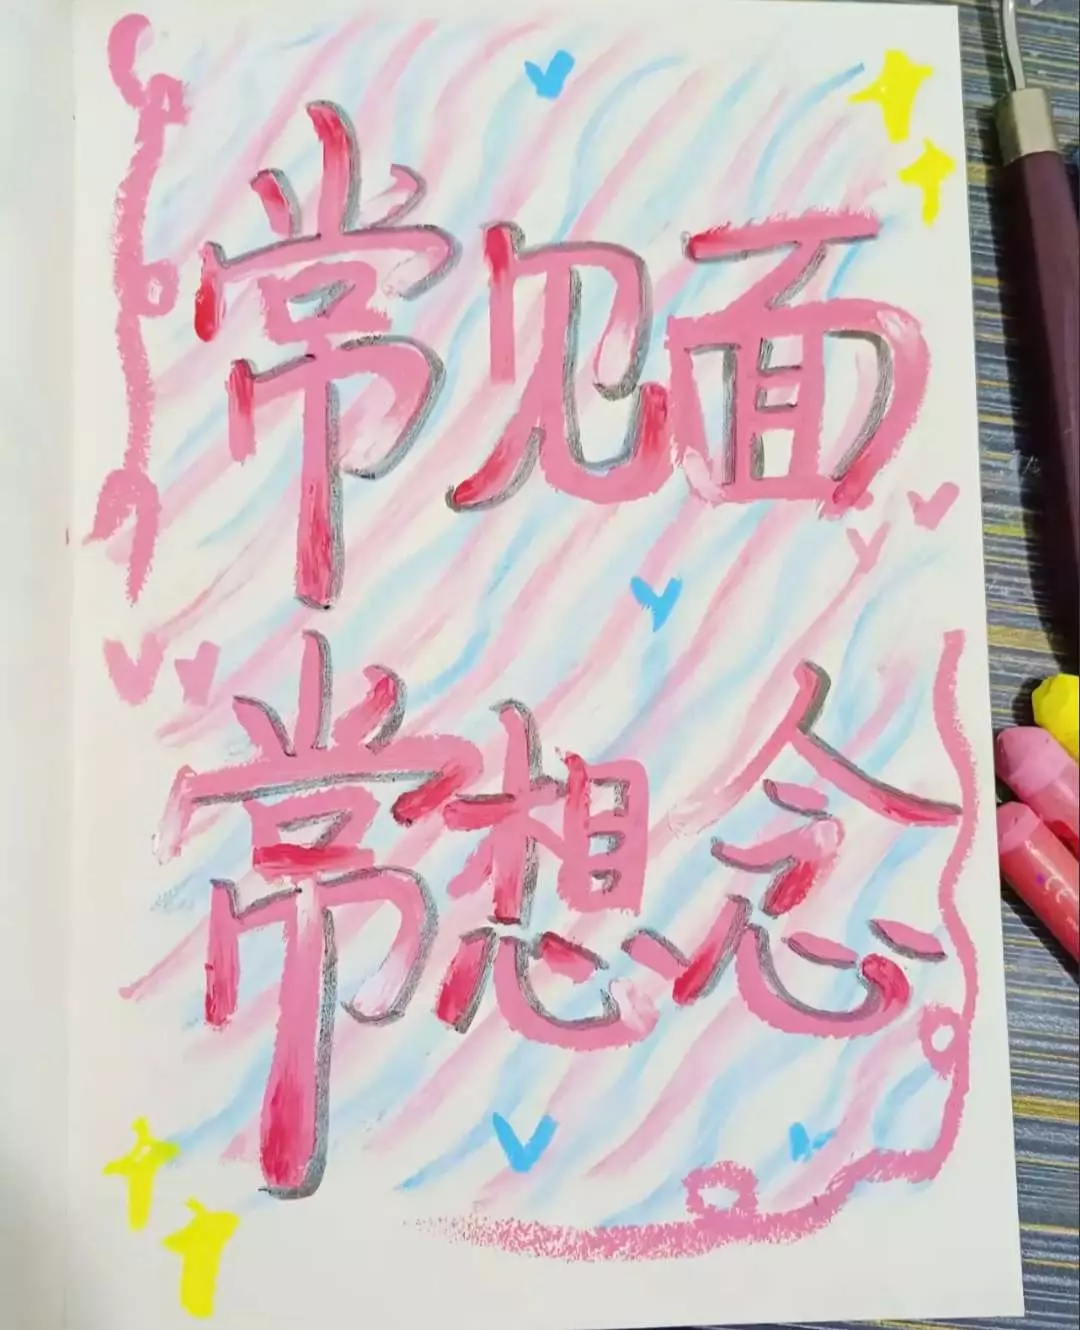 常见面
常想念